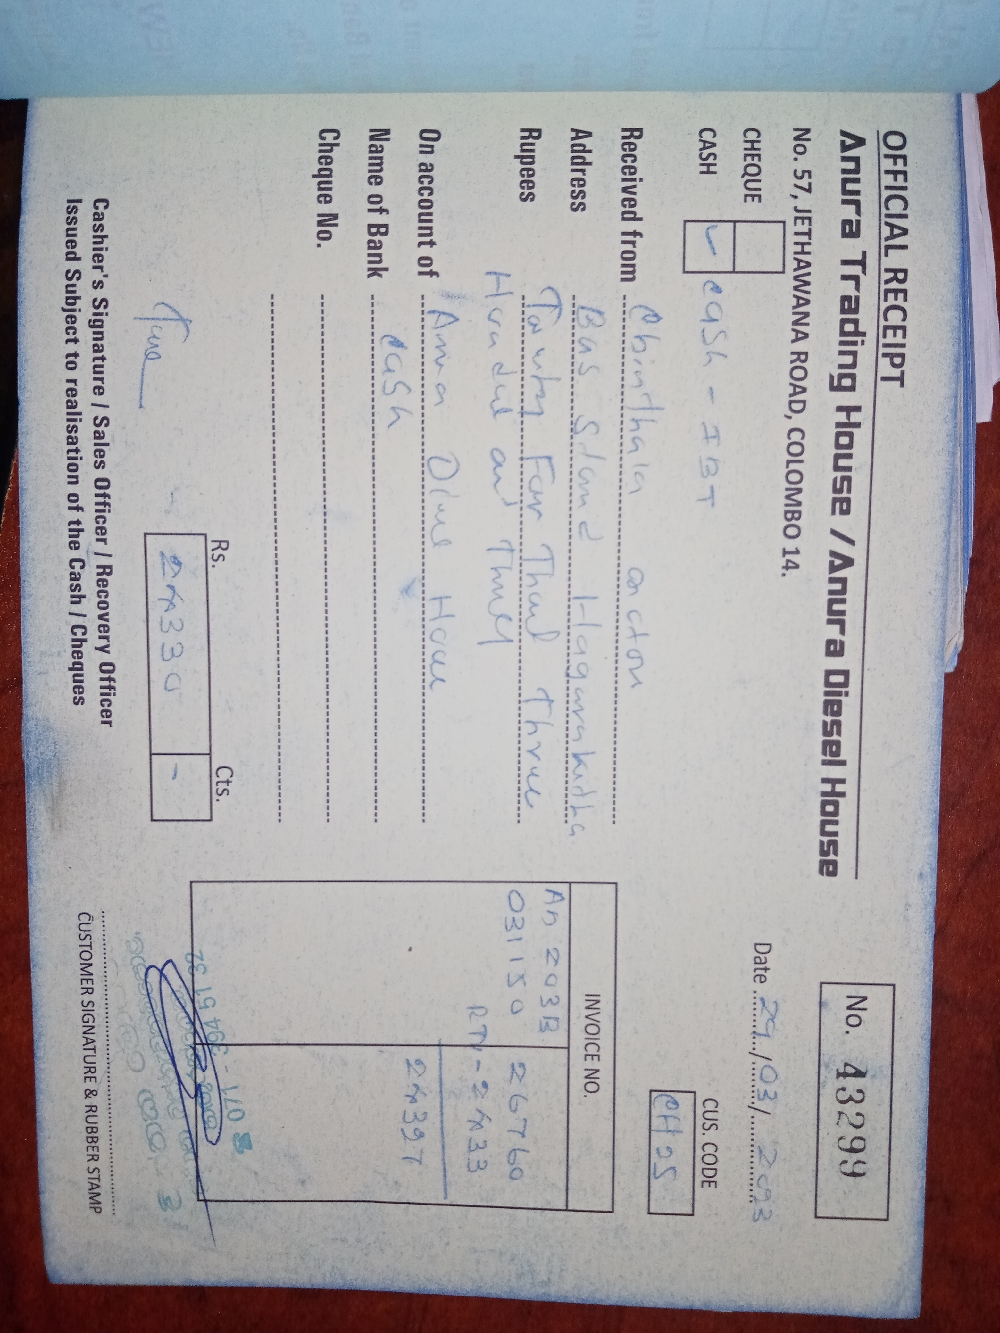 OFFICIAL RECEIPT
Anura Trading House / Anura Diesel House
No. 57, JETHAWANA ROAD, COLOMBO 14.
No. 43299
Date 29/03/2023
CHEQUE
CASH ✓ cash - IBT
CUS. CODE
CH05
Received from Chinthaka
Address Bus Stand Hagurakitha
Rupees Twenty Four Thousand Three
Hundred and Thirty
On account of Anura Diesel House
Name of Bank cash
Cheque No.
INVOICE NO.
An 203B
031150 26760
RTN - 2433
24397
Rs. Cts.
24330 -
071 - 394 51 32
Cashier's Signature / Sales Officer / Recovery Officer
Issued Subject to realisation of the Cash / Cheques
CUSTOMER SIGNATURE & RUBBER STAMP